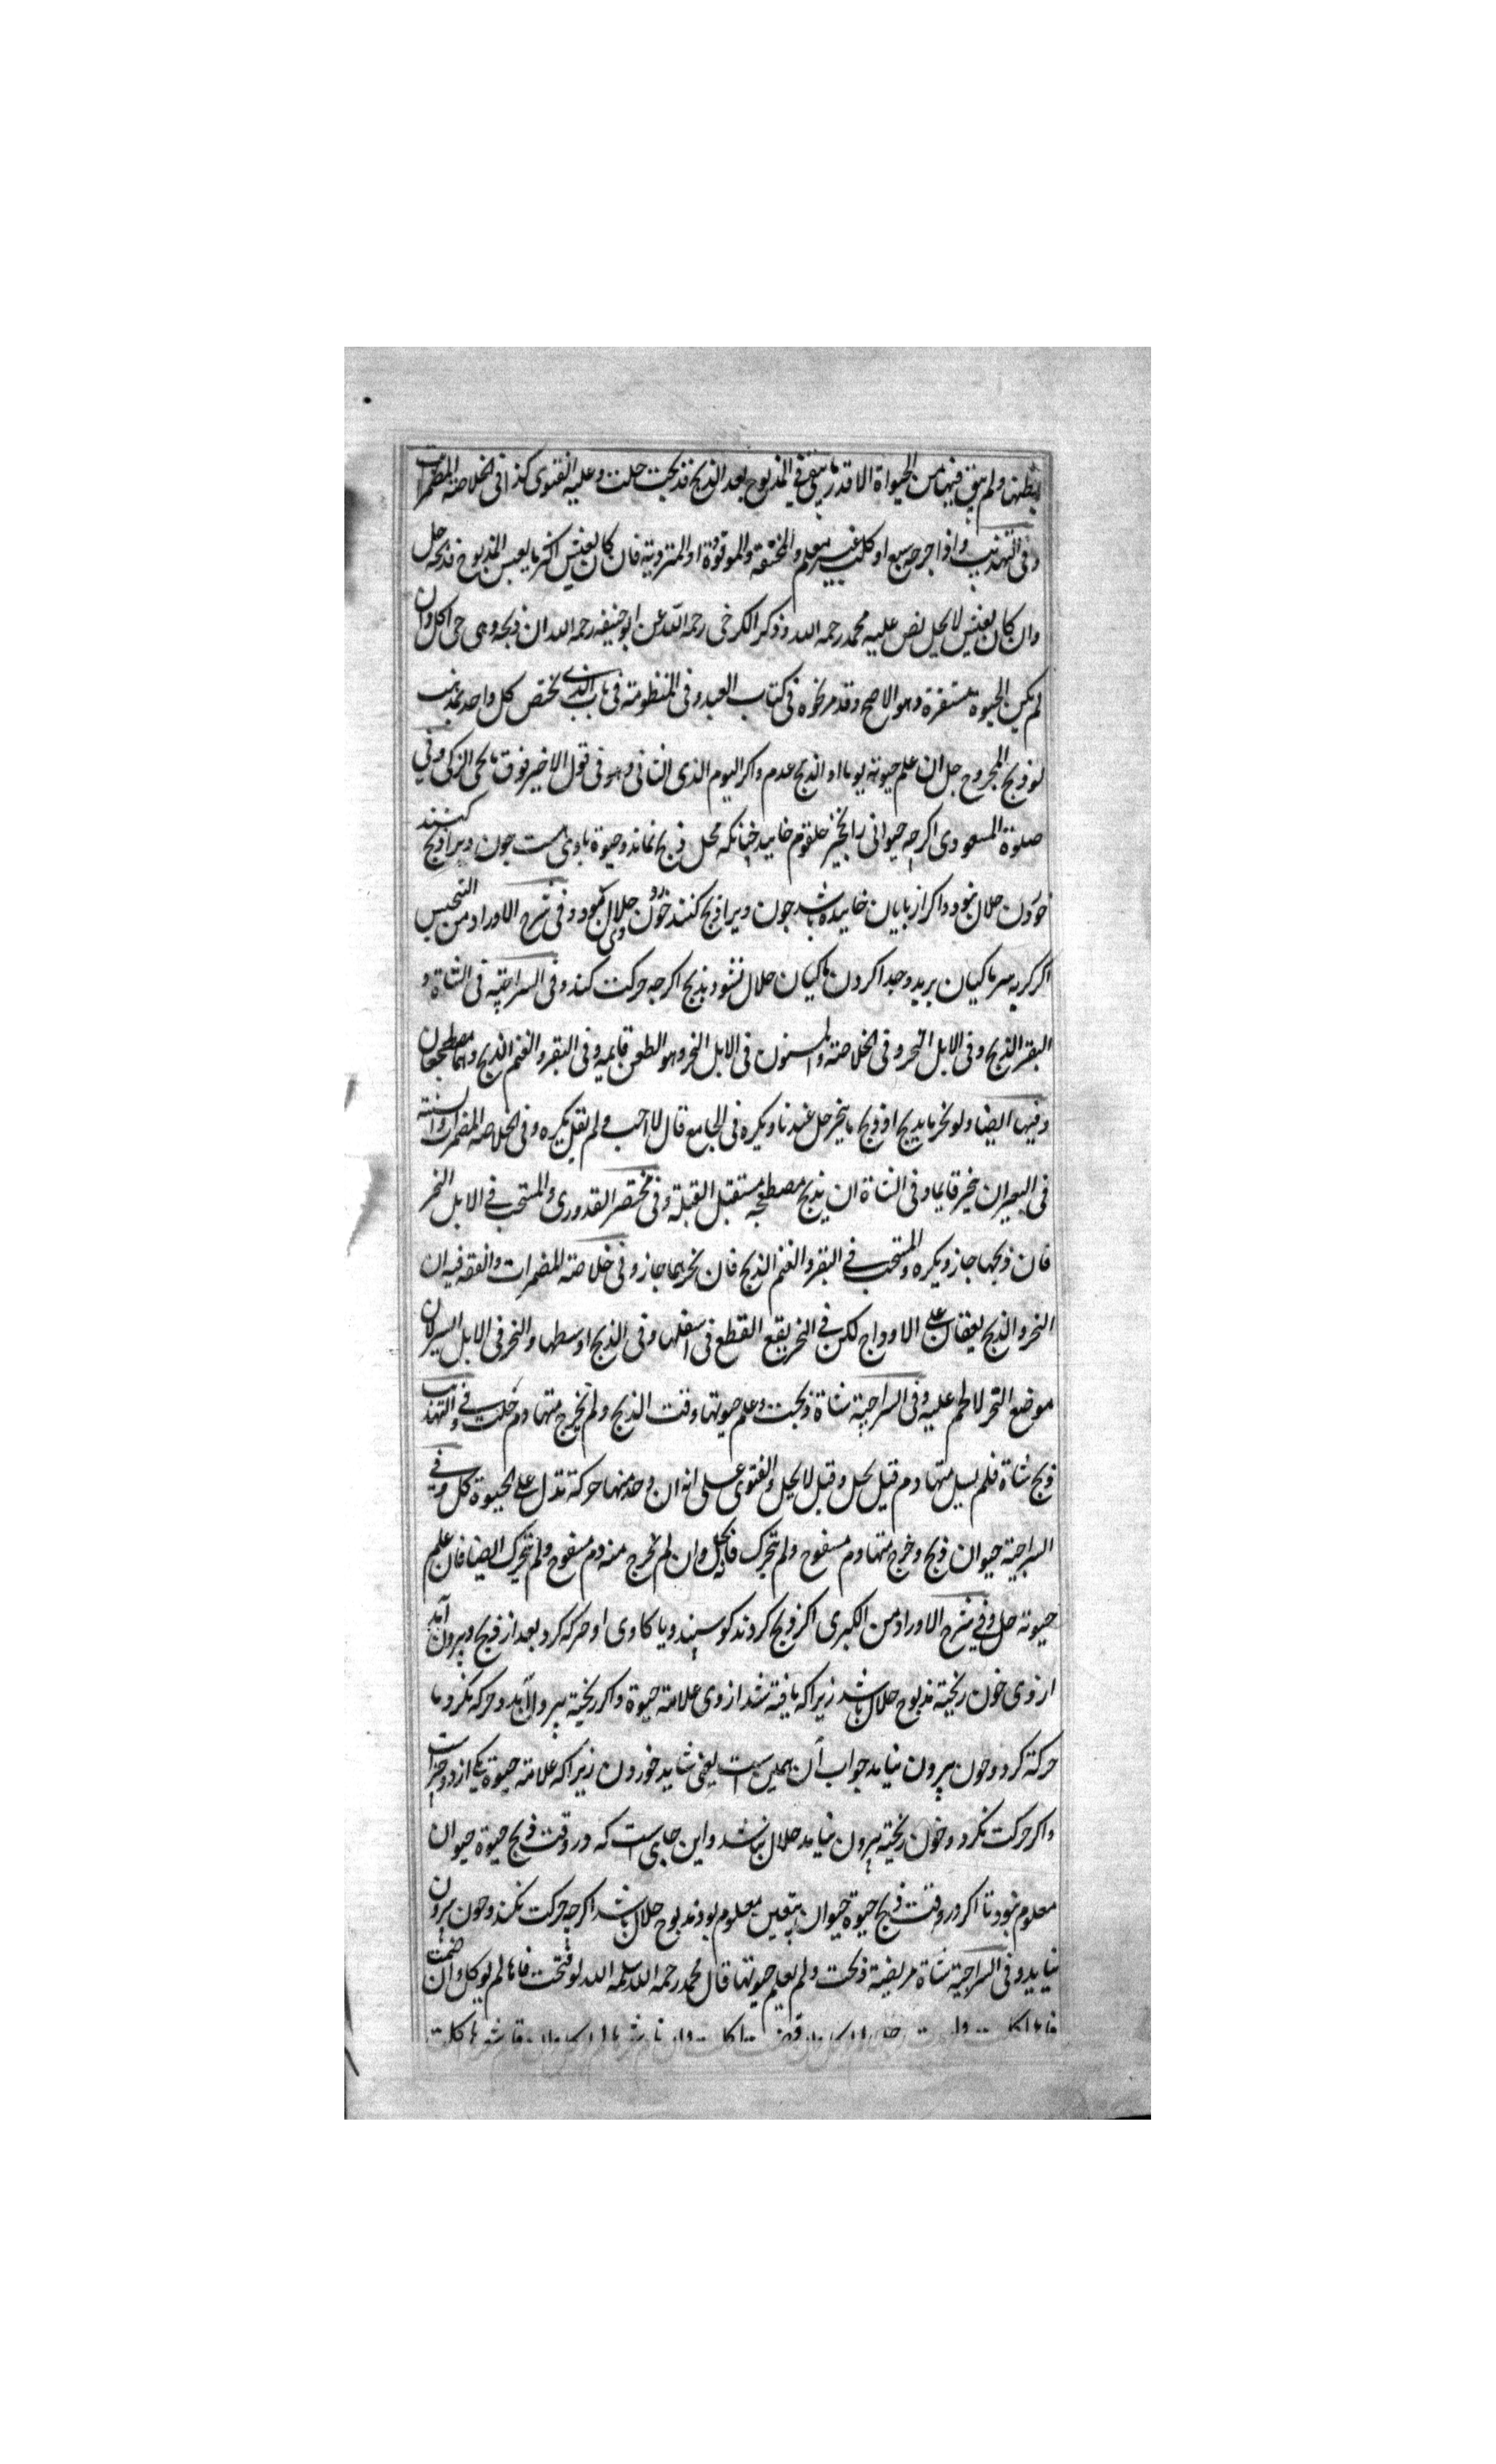 بطنها ولم يبق فيها من الحيواة الا قدر ما يبقى في المذبوح بعد الذبح فذبحت حلت وعليه الفتوى كذا فى الخلاصة المضمرات
وفى التهذيب واذا جرحه سبع او كلب غير معلم والمخنقة والموقوذة او المتردية فان كان يعيش اكثر ما يعيش المذبوح فذبحه حل
وان كان يعيش لا يحل نص عليه محمد رحمه الله وذكر الكرخى رحمه الله عن ابو حنيفه رحمه الله ان ذبحه وهى حى اكل وان
لم يكن الحيوة مستقرة وهو الاصح وقد مر نحوه فى كتاب العبد وفى المنظومة فى باب الذى يختص كل واحد بمذهب
لو ذبح المجروح حل ان علم حيوته يوما او الذبح عدم واكثر اليوم الذى الثانى وهو فى قول الاخير فوق ما يحى الزكى وفي
صلوة المسعودى اكرچه حيوانى را بخير حلقوم خاييد چنانكه محل ذبح نماند وحيوة با وى هست چون ويرا ذبح كنند
خوردن حلال نبود واكر از پايان خاييده باشد چون ويرا ذبح كنند خوردن وى حلال بود وفى شرح الاوراد من التجنيس
اكر كربه سر ماكيان بريد وجدا كرد ان ماكيان حلال نشود بذبح اكرچه حركت كند وفى السراجية فى الشاة و
البقر الذبح وفى الابل النحر وفى الخلاصة والمسنون فى الابل النحر وهو الطعن قايمه وفى البقر والغنم الذبح وهما مضطجعان
وفيها ايضا ولو نحر ما يذبح او ذبح ما ينحر حل عندنا ويكره فى الجامع قال لا احب ولم يقل يكره وفى الخلاصة المضمرات والسنة
فى البعير ان ينحر قايما وفى الشاة ان يذبح مضطجعه مستقبل القبلة وفى مختصر القدورى والمستحب في الابل النحر
فان ذبحها جاز ويكره والمستحب في البقر والغنم الذبح فان نحرهما جاز وفى خلاصة المضمرات والفقه فيه ان
النحر والذبح يقعان على الاوداج لكن في النحر يقع القطع فى اسفلها وفى الذبح اوسطها والنحر فى الابل ايسر لان
موضع النحر لا لحم عليه وفى السراجية شاة ذبحت وعلم حيوتها وقت الذبح ولم يخرج منها دم حلت وفي التهذيب
ذبح شاة فلم يسل منها دم قيل يحل وقيل لا يحل والفتوى على انه ان وجد منها حركة تدل على الحيوة اكل وفي
السراجية حيوان ذبح وخرج منها دم مسفوح ولم يتحرك فانه يحل وان لم يخرج منه دم مسفوح ولم يتحرك ايضا فان علم
حيوته حل وفي شرح الاوراد من الكبرى اكر ذبح كردند كوسپند ويا كاوى او حركه كرد بعد از ذبح وبيرون آمد
از وى خون ريخته مذبوح حلال باشد زيراكه يافته شد از وى علامة حيوة واكر ريخته بيرون آيد وحركه نكرد يا
حركة كرد وخون بيرون نيايد جواب آن همين است يعنى شايد خوردن زيراكه علامة حيوة يكى از دو چيز است
واكر حركت نكرد وخون ريخته بيرون نيامد حلال نباشد واين جاى است كه در وقت ذبح حيوة حيوان
معلوم نبود تا اكر در وقت ذبح حيوة حيوان بيقين معلوم بود مذبوح حلال باشد اكرچه حركت نكند وخون بيرون
نيايد وفى السراجية شاة مريضة ذبحت ولم يعلم حيوتها قال محمد رحمه الله سلمه الله لو فتحت فاها لم يوكل وان ضمت
فاها اكلت